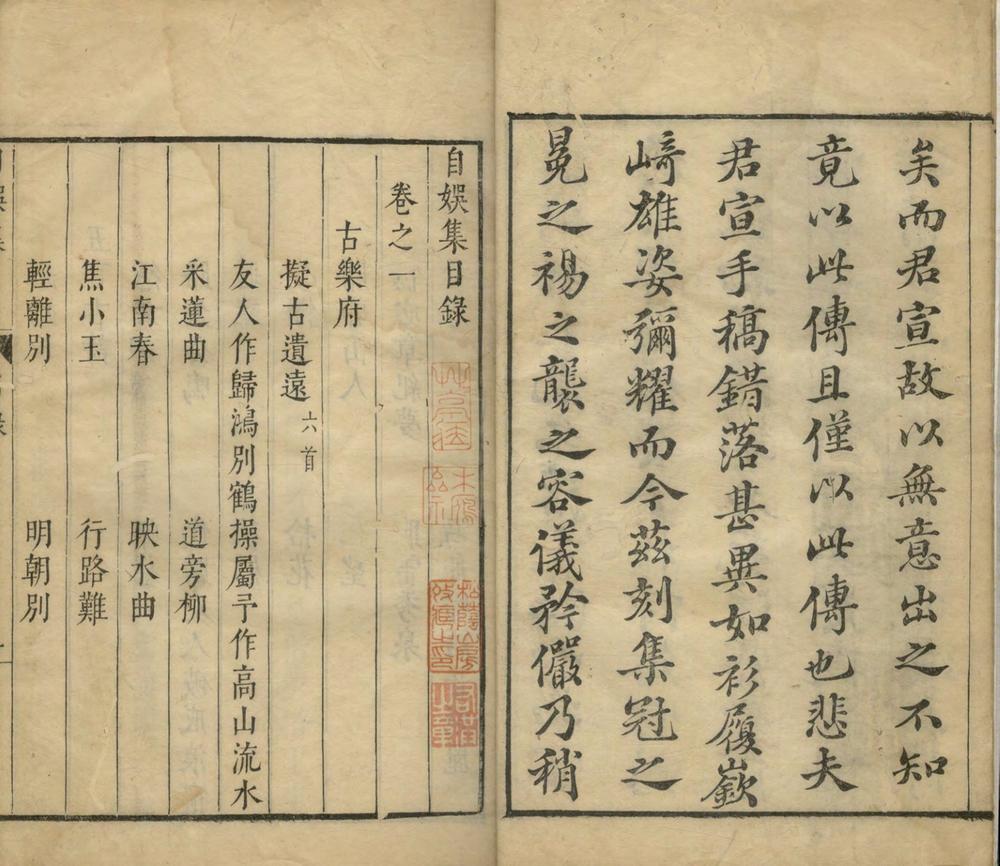 矣而君宣故以無意出之不知
竟以此傳且僅以此傳也悲夫
君宣手稿錯落甚異如衫履嶔
﨑雄姿彌耀而今茲刻集冠之
冕之裼之襲之容儀矜儼乃稍
自娛集目錄
卷之一
古樂府
擬古遺遠 六首
友人作歸鴻別鶴操屬予作高山流水
采蓮曲 道旁柳
江南春 映水曲
焦小玉 行路難
輕離別 明朝別